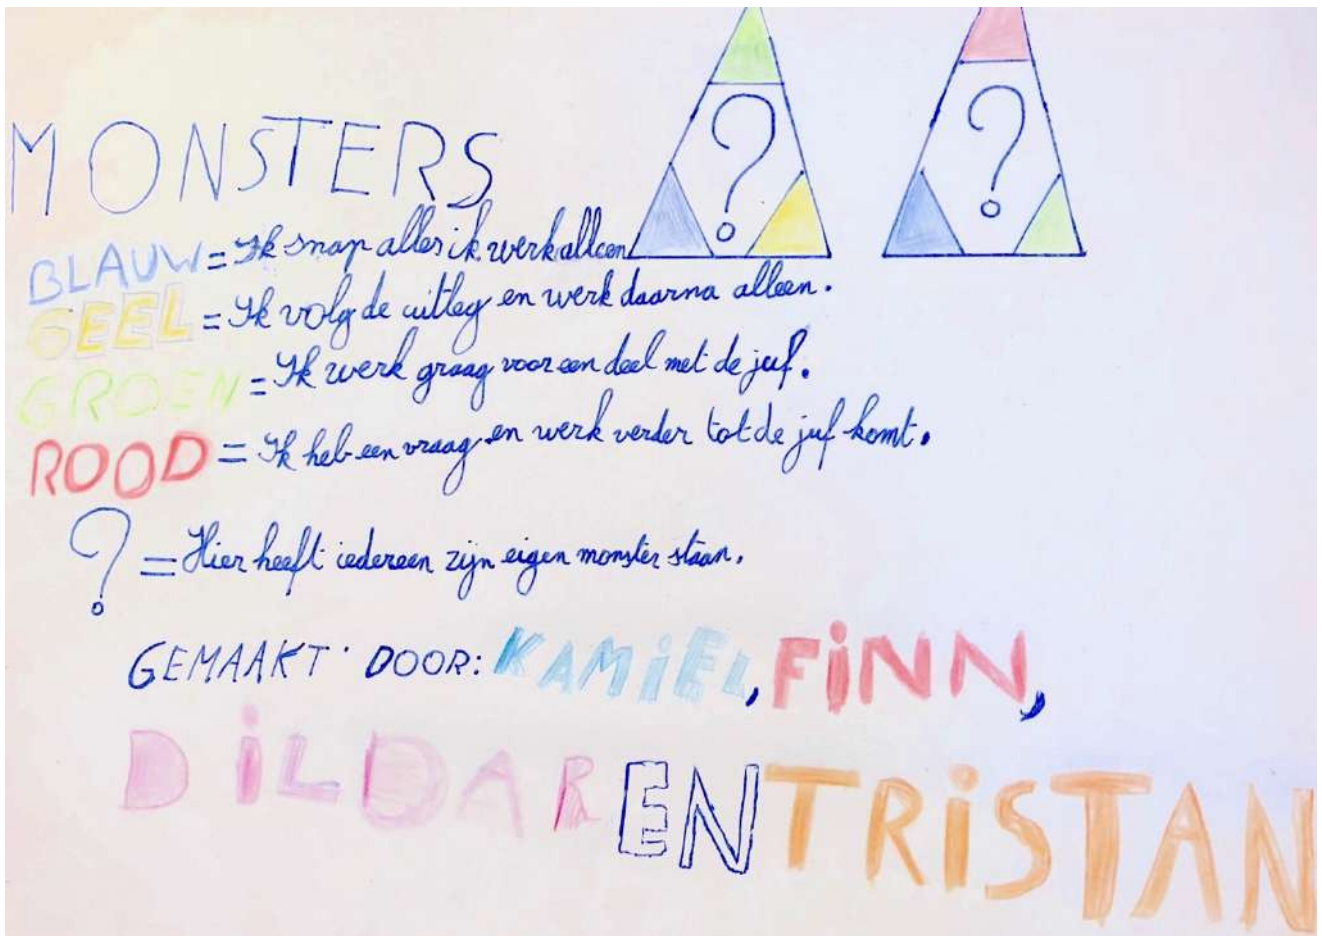 ?
?
MONSTERS
BLAUW = Ik snap alles ik werk alleen
GEEL = Ik volg de uitleg en werk daarna alleen.
GROEN = Ik werk graag voor een deel met de juf.
ROOD = Ik heb een vraag en werk verder tot de juf komt.
? = Hier heeft iedereen zijn eigen monster staan.
GEMAAKT DOOR: KAMiEL, FiNN,
DiLDAR EN TRiSTAN